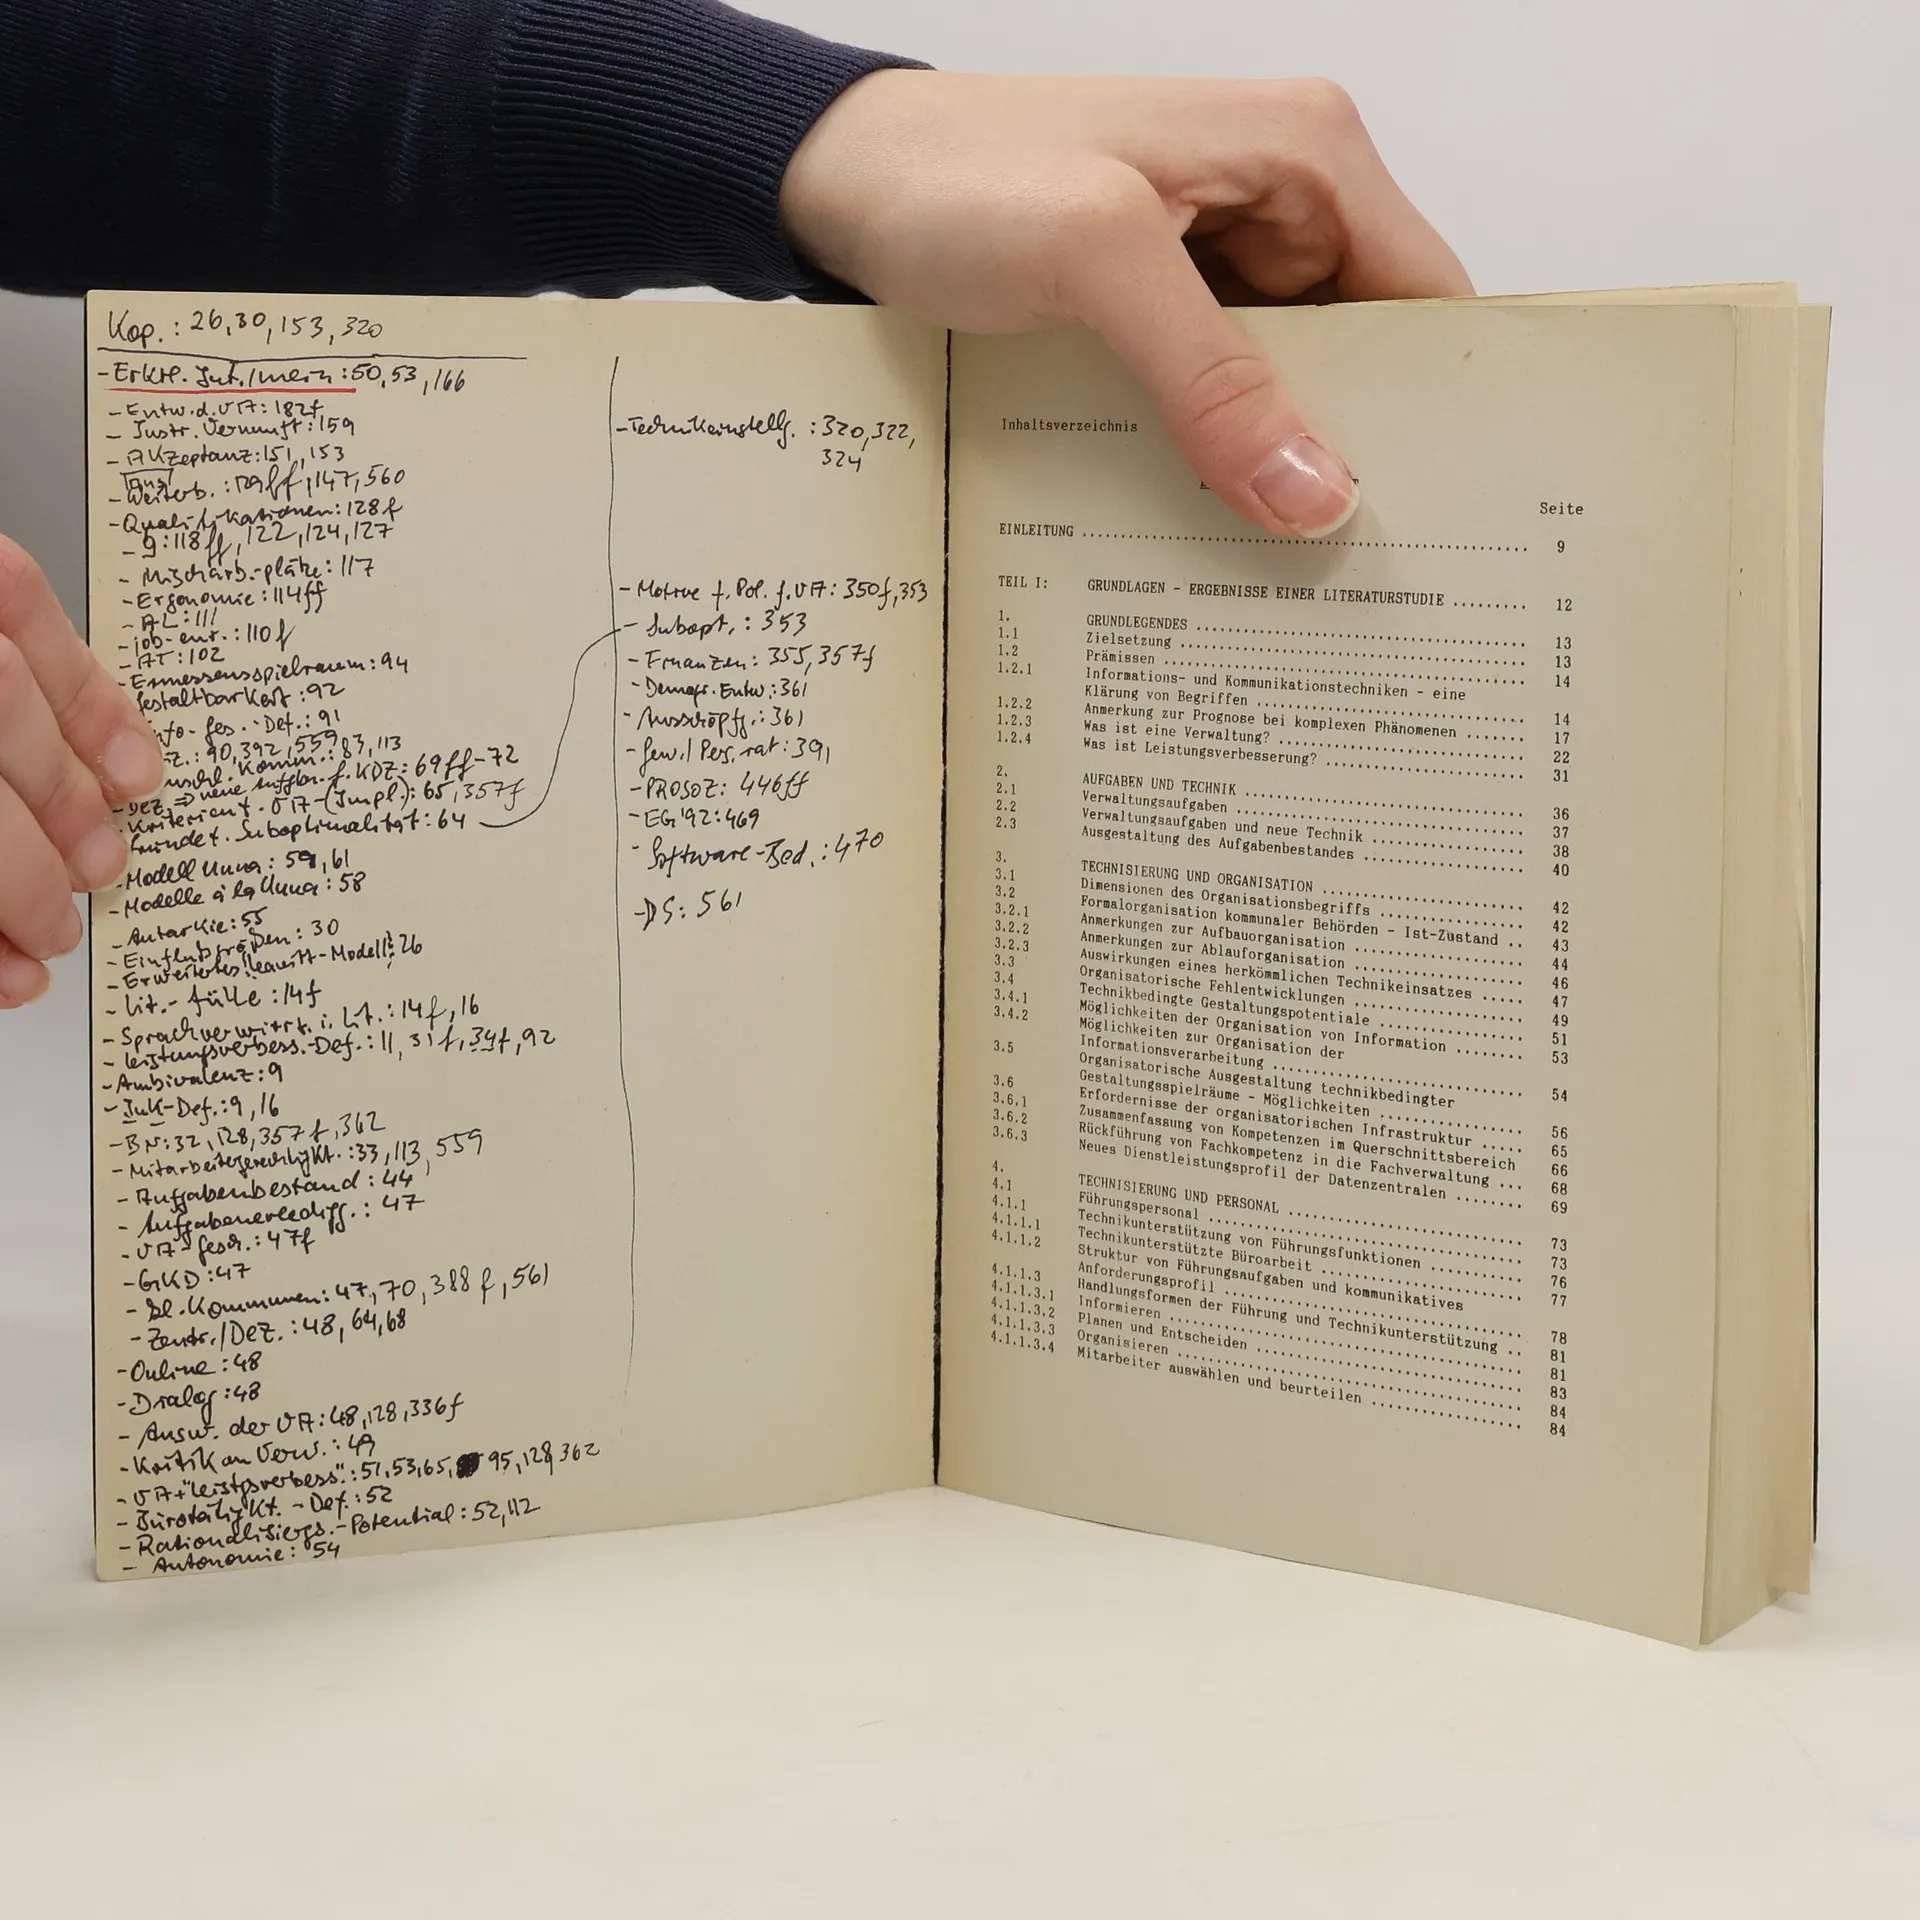 Kop.: 26,30,153,320
-Erkl. Int./mein: 50,53,166
- Entw.d. VA: 182f
- Instr. Vernunft: 159
- Akzeptanz: 151, 153
- Weiterb.: 129ff, 147, 560
- Qualifikationen: 128f
- 9: 118ff, 122, 124, 127
- Mischarb.-plätze: 117
- Ergonomie: 114ff
- AL: 111
- job-enr.: 110f
- AT: 102
- Ermessensspielraum: 94
Gestaltbarkeit: 92
Info-Ges.-Def.: 91
Z.: 90, 392, 559
Komm.: 83, 113
- Dez. => neue Aufgbn. f. KDZ: 69ff-72
Kriterien f. VA-(Impl.): 65, 357f
Suboptimalität: 64
- Modell Unna: 59, 61
- Modelle à la Unna: 58
- Autarkie: 55
- Einflußgrößen: 30
- Erweitertes Leavitt-Modell: 26
- Lit.-Fülle: 14f
- Sprachverwirrt. i. Lit.: 14f, 16
- Leistungsverbess.-Def.: 11, 31f, 34f, 92
- Ambivalenz: 9
- IuK-Def.: 9, 16
- BN: 32, 128, 357f, 362
- Mitarbeitergerechtigkt.: 33, 113, 559
- Aufgabenbestand: 44
- Aufgabenerledigg.: 47
- VA-Gesch.: 47f
- GKD: 47
- Kl. Kommunen: 47, 70, 388f, 561
- Zentr./Dez.: 48, 64, 68
- Online: 48
- Dialog: 48
- Ausw. der VA: 48, 128, 336f
- Kritik an Verw.: 49
- VA+"Leistgsverbess": 51, 53, 65, 95, 128, 362
- Bürotätigkt.-Def.: 52
- Rationalisiergs.-Potential: 52, 112
- Autonomie: 54
- Technikeinstellg.: 320, 322,
324
- Motive f. Pol. f. VA: 350f, 353
- Subopt.: 353
- Finanzen: 355, 357f
- Demogr. Entw.: 361
- Ausschöpfg.: 361
- Gew./Pers.rat: 391
- PROSOZ: 446ff
- EG'92: 469
- Software-Bed.: 470
- DS: 561
Inhaltsverzeichnis
Seite
EINLEITUNG ........ 9
TEIL I: GRUNDLAGEN - ERGEBNISSE EINER LITERATURSTUDIE ........ 12
1. GRUNDLEGENDES ........ 13
1.1 Zielsetzung ........ 13
1.2 Prämissen ........ 14
1.2.1 Informations- und Kommunikationstechniken - eine
Klärung von Begriffen ........ 14
1.2.2 Anmerkung zur Prognose bei komplexen Phänomenen ........ 17
1.2.3 Was ist eine Verwaltung? ........ 22
1.2.4 Was ist Leistungsverbesserung? ........ 31
2. AUFGABEN UND TECHNIK ........ 36
2.1 Verwaltungsaufgaben ........ 37
2.2 Verwaltungsaufgaben und neue Technik ........ 38
2.3 Ausgestaltung des Aufgabenbestandes ........ 40
3. TECHNISIERUNG UND ORGANISATION ........ 42
3.1 Dimensionen des Organisationsbegriffs ........ 42
3.2 Formalorganisation kommunaler Behörden - Ist-Zustand .. 43
3.2.1 Anmerkungen zur Aufbauorganisation ........ 44
3.2.2 Anmerkungen zur Ablauforganisation ........ 46
3.2.3 Auswirkungen eines herkömmlichen Technikeinsatzes ..... 47
3.3 Organisatorische Fehlentwicklungen ........ 49
3.4 Technikbedingte Gestaltungspotentiale ........ 51
3.4.1 Möglichkeiten der Organisation von Information ........ 53
3.4.2 Möglichkeiten zur Organisation der
Informationsverarbeitung ........ 54
3.5 Organisatorische Ausgestaltung technikbedingter
Gestaltungsspielräume - Möglichkeiten ........ 56
3.6 Erfordernisse der organisatorischen Infrastruktur ..... 65
3.6.1 Zusammenfassung von Kompetenzen im Querschnittsbereich 66
3.6.2 Rückführung von Fachkompetenz in die Fachverwaltung ... 68
3.6.3 Neues Dienstleistungsprofil der Datenzentralen ....... 69
4. TECHNISIERUNG UND PERSONAL ........ 73
4.1 Führungspersonal ........ 73
4.1.1 Technikunterstützung von Führungsfunktionen ........ 76
4.1.1.1 Technikunterstützte Büroarbeit ........ 77
4.1.1.2 Struktur von Führungsaufgaben und kommunikatives
Anforderungsprofil ........ 78
4.1.1.3 Handlungsformen der Führung und Technikunterstützung .. 81
4.1.1.3.1 Informieren ........ 81
4.1.1.3.2 Planen und Entscheiden ........ 83
4.1.1.3.3 Organisieren ........ 84
4.1.1.3.4 Mitarbeiter auswählen und beurteilen ........ 84